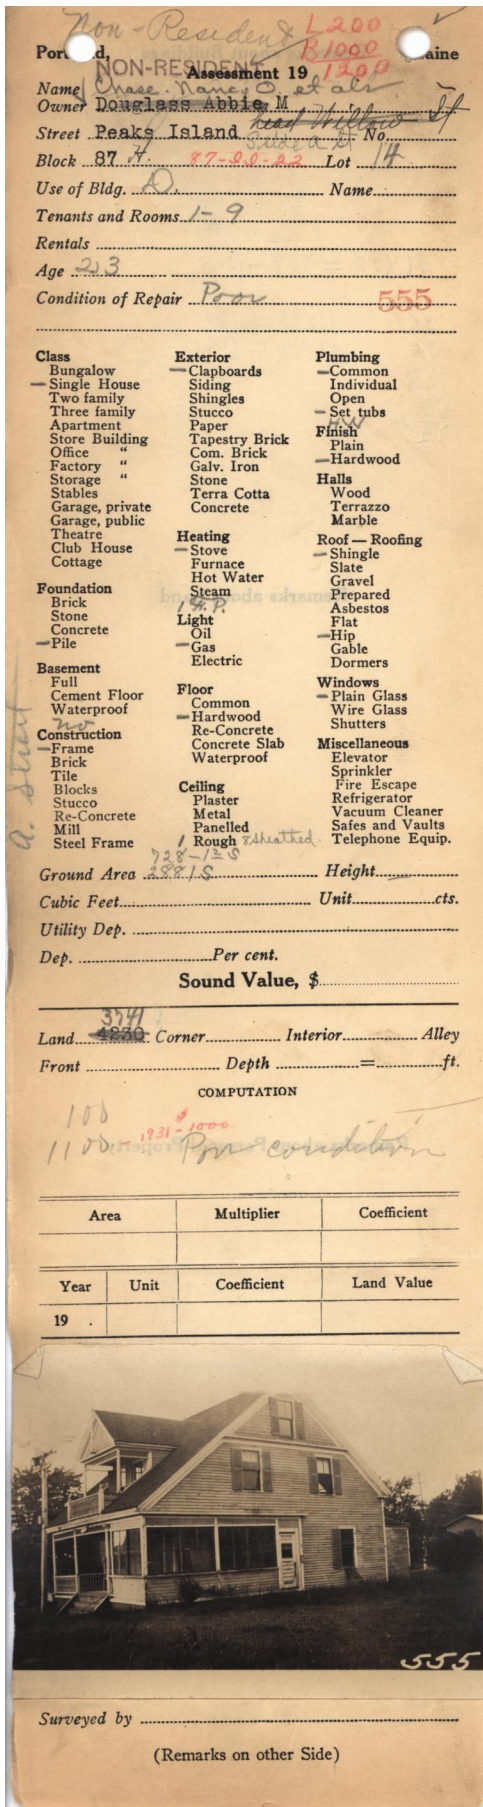 Non-Resident
L 200
B 1000
1200
Portland, Maine
NON-RESIDENT
Assessment 19
Name Chase. Nancy O. et als
Owner Douglass Abbie M
Street Peaks Island head Willow St No.
Side A St
Block 87 H. 87-OO-22 Lot 14
Use of Bldg. D. Name
Tenants and Rooms 1-9
Rentals
Age 23
Condition of Repair Poor 555
Class
Bungalow
Single House
Two family
Three family
Apartment
Store Building
Office "
Factory "
Storage "
Stables
Garage, private
Garage, public
Theatre
Club House
Cottage
Foundation
Brick
Stone
Concrete
Pile
Basement
Full
Cement Floor
Waterproof
no
Construction
Frame
Brick
Tile
Blocks
Stucco
Re-Concrete
Mill
Steel Frame
A. Street
Exterior
Clapboards
Siding
Shingles
Stucco
Paper
Tapestry Brick
Com. Brick
Galv. Iron
Stone
Terra Cotta
Concrete
Heating
Stove
Furnace
Hot Water
Steam
1 F.P.
Light
Oil
Gas
Electric
Floor
Common
Hardwood
Re-Concrete
Concrete Slab
Waterproof
Ceiling
Plaster
Metal
Panelled
1 Rough 8 Sheathed
Plumbing
Common
Individual
Open
Set tubs
HW
Finish
Plain
Hardwood
Halls
Wood
Terrazzo
Marble
Roof — Roofing
Shingle
Slate
Gravel
Prepared
Asbestos
Flat
Hip
Gable
Dormers
Windows
Plain Glass
Wire Glass
Shutters
Miscellaneous
Elevator
Sprinkler
Fire Escape
Refrigerator
Vacuum Cleaner
Safes and Vaults
Telephone Equip.
728-1 3/4 S
Ground Area 288 1 S Height
Cubic Feet Unit cts.
Utility Dep.
Dep. Per cent.
Sound Value, $
3741
Land 4230 Corner Interior Alley
Front Depth = ft.
COMPUTATION
100
1100 - 1931 - $1000 Poor condition
Area Multiplier Coefficient
Year Unit Coefficient Land Value
19 .
555
Surveyed by
(Remarks on other Side)